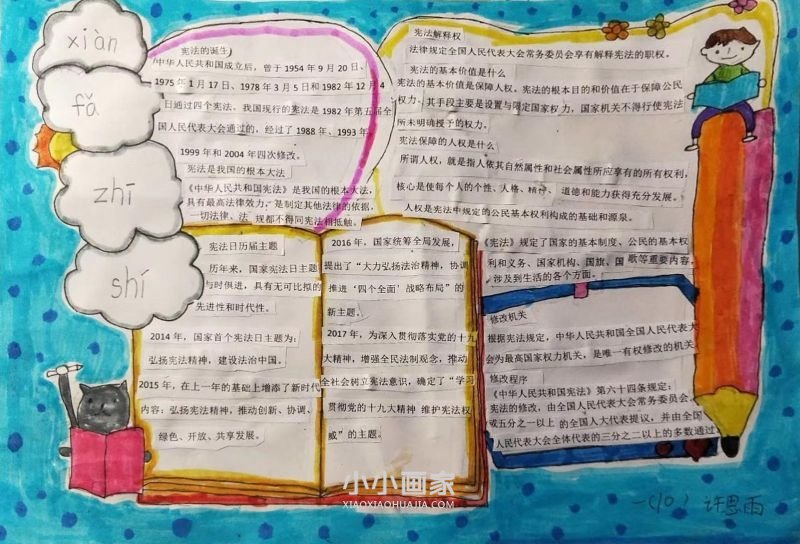 xiàn
fǎ
zhī
shí
宪法的诞生
中华人民共和国成立后，曾于 1954 年 9 月 20 日、
1975 年 1 月 17 日、1978 年 3 月 5 日和 1982 年 12 月 4
日通过四个宪法，我国现行的宪法是 1982 年第五届全
国人民代表大会通过的，经过了 1988 年、1993 年、
1999 年和 2004 年四次修改。
宪法是我国的根本大法
《中华人民共和国宪法》是我国的根本大法，
具有最高法律效力，是制定其他法律的依据，
一切法律、法 规都不得同宪法相抵触。
宪法解释权
法律规定全国人民代表大会常务委员会享有解释宪法的职权。
宪法的基本价值是什么
宪法的基本价值是保障人权。宪法的根本目的和价值在于保障公民
权力，其手段主要是设置与限定国家权力，国家机关不得行使宪法
所未明确授予的权力。
宪法保障的人权是什么
所谓人权，就是指人依其自然属性和社会属性所应享有的所有权利，
核心是使每个人的个性、人格、精神、道德和能力获得充分发展。
人权是宪法中规定的公民基本权利构成的基础和源泉。
《宪法》规定了国家的基本制度、公民的基本权
利和义务、国家机构、国旗、国歌等重要内容。
涉及到生活的各个方面。
宪法日历届主题
历年来，国家宪法日主题
与时俱进，具有无可比拟的
先进性和时代性。
2014 年，国家首个宪法日主题为：
弘扬宪法精神，建设法治中国。
2015 年，在上一年的基础上增添了新时代
内容：弘扬宪法精神，推动创新、协调、
绿色、开放、共享发展。
2016 年，国家统筹全局发展，
提出了“大力弘扬法治精神，协调
推进‘四个全面’战略布局”的
新主题。
2017 年，为深入贯彻落实党的十九
大精神，增强全民法制观念，推动
全社会树立宪法意识，确定了“学习
贯彻党的十九大精神 维护宪法权
威”的主题。
修改机关
根据宪法规定，中华人民共和国全国人民代表大
会为最高国家权力机关，是唯一有权修改的机关
修改程序
《中华人民共和国宪法》第六十四条规定：
宪法的修改，由全国人民代表大会常务委员会
或五分之一以上的全国人大代表提议，并由全国
人民代表大会全体代表的三分之二以上的多数通过
小小画家
XIAOXIAOHUAJIA.COM
一(10) 许思雨